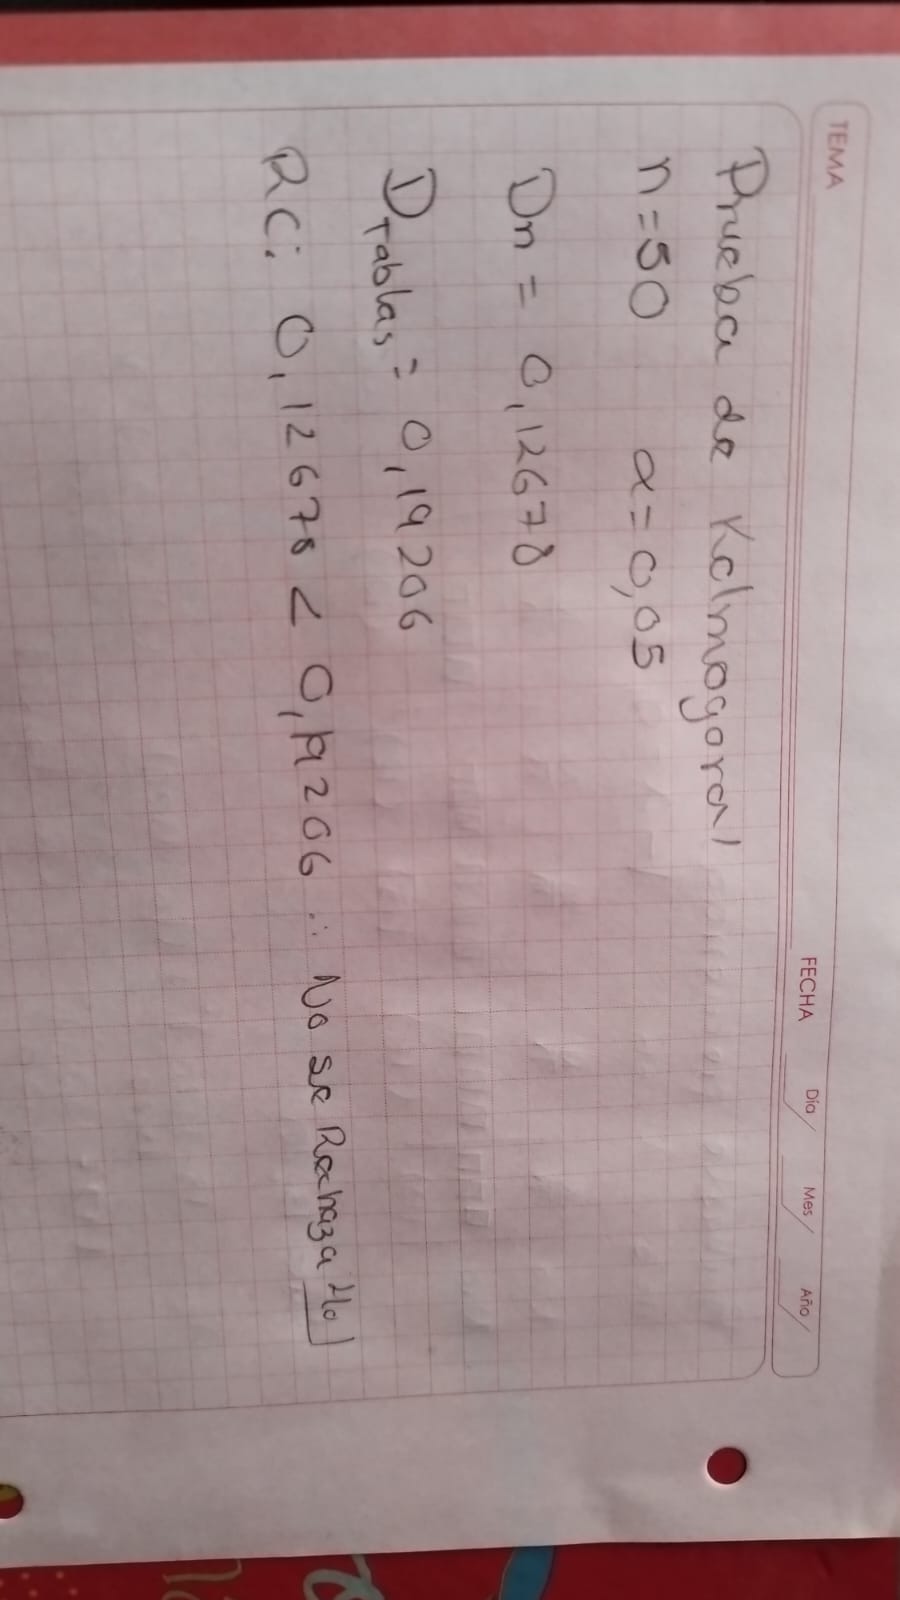 TEMA
FECHA Día/ Mes/ Año/
Prueba de Kolmogorov
n=50 α=0,05
Dn = 0,12678
DTablas = 0,19206
RC: 0,12678 < 0,19206 ∴ No se Rechaza Ho